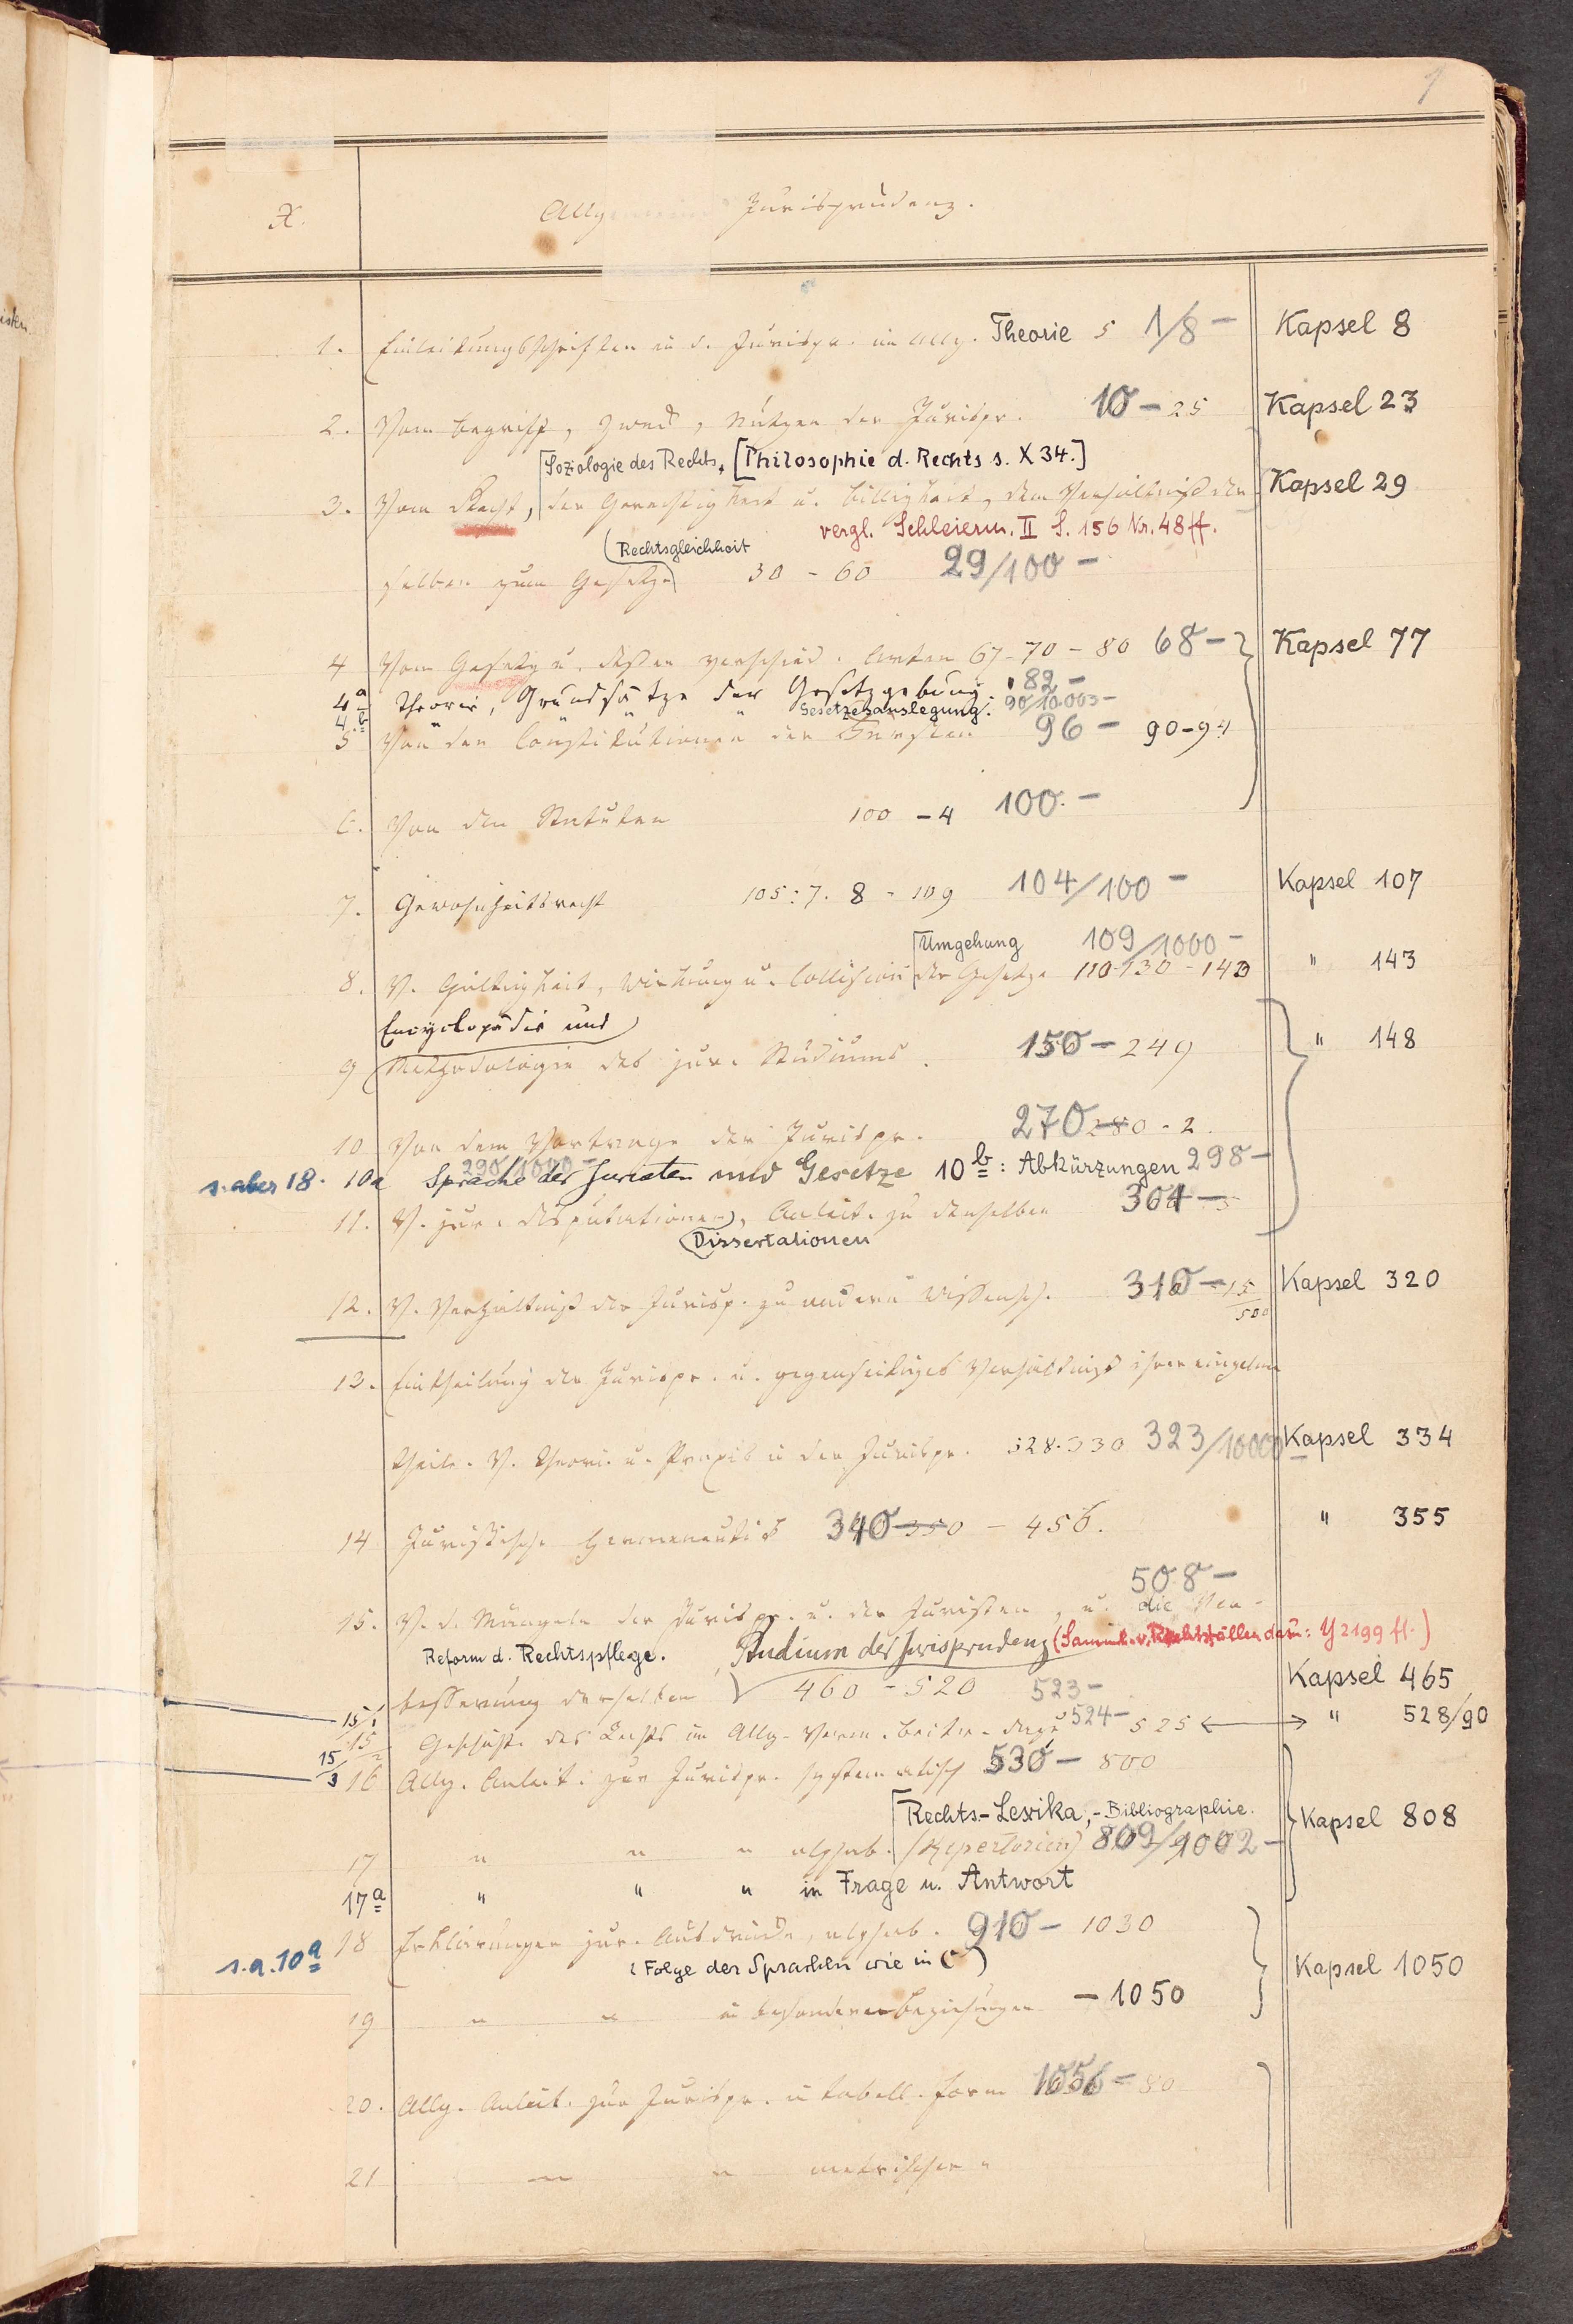 1
X. Allgemeine Jurisprudenz.
1. Einleitungsschriften in d. Jurispr. im Allg. Theorie 5 1/8 – Kapsel 8
2. Vom Begriff, Zweck, Nutzen der Jurispr. 10 – 25 Kapsel 23
[Soziologie des Rechts, [Philosophie d. Rechts s. X 34.]
3. Vom Recht, der Gerechtigkeit u. Billigkeit, dem Verhältniß der- Kapsel 29
vergl. Schleierm. II S. 156 Nr. 48 ff.
(Rechtsgleichheit
selben zum Gesetze 30 – 60 29/100 –
4 Vom Gesetz u. dessen verschied. Arten 67–70 – 80 68 – Kapsel 77
4a Theorie, Grundsätze der Gesetzgebung. 82 –
4b " " " Gesetzesauslegung. 90/10.003 –
5 Von den Constitutionen der Fürsten 96 – 90–94
6. Von den Statuten 100 – 4 100. –
7. Gewohnheitsrecht 105:7. 8 – 109 104/100 – Kapsel 107
[Umgehung 109/1000 –
8. V. Gültigkeit, Wirkung u. Collision der Gesetze 110–130 – 142 " 143
Encyclopädie und
9 Methodologie des jur. Studiums. 150 – 249 " 148
10 Von dem Vortrage der Jurispr. 270 280 – 2.
290/1000 –
s. aber 18. 10a Sprache der Juristen und Gesetze 10b: Abkürzungen 298 –
11. V. jur. Disputationen, Anleit. zu denselben 304 – 5
(Dissertationen
12. V. Verhältniß der Jurisp. zu andern Wissensch. 310 – 15/500 Kapsel 320
13. Eintheilung der Jurispr. u. gegenseitiges Verhältniß ihrer einzelnen
Theile. V. Theorie u. Praxis in der Jurispr. 328–330 323/10000 Kapsel 334
14 Juristische Hermeneutik 340 350 – 456. " 355
508 –
15. V. d. Mängeln der Jurispr. u. der Juristen, u. die Ver-
Reform d. Rechtspflege. Studium der Jurisprudenz (Samml. v. Rechtsfällen dazu: Y 2199 ff.)
besserung derselben 460 – 520 523 – Kapsel 465
15/1
15/2 Geschichte des Rechts im Allg. Verm. Beitr. dazu 524 – 525 ↔ " 528/90
15/3 16 Allg. Anleit. zur Jurispr. systematisch 530 – 800
[Rechts-Lexika, -Bibliographie. Kapsel 808
17 " " " alphab. (Repertorien) 809/1002 –
17a " " " in Frage u. Antwort
18 Erklärungen jur. Ausdrücke, alphab. 910 – 1030
s. a. 10a (Folge der Sprachen wie in C) Kapsel 1050
19 " " in besonderen Beziehungen – 1050
20. Allg. Anleit. zur Jurispr. in tabell. Form 1056 – 80
21 " " metrischer "